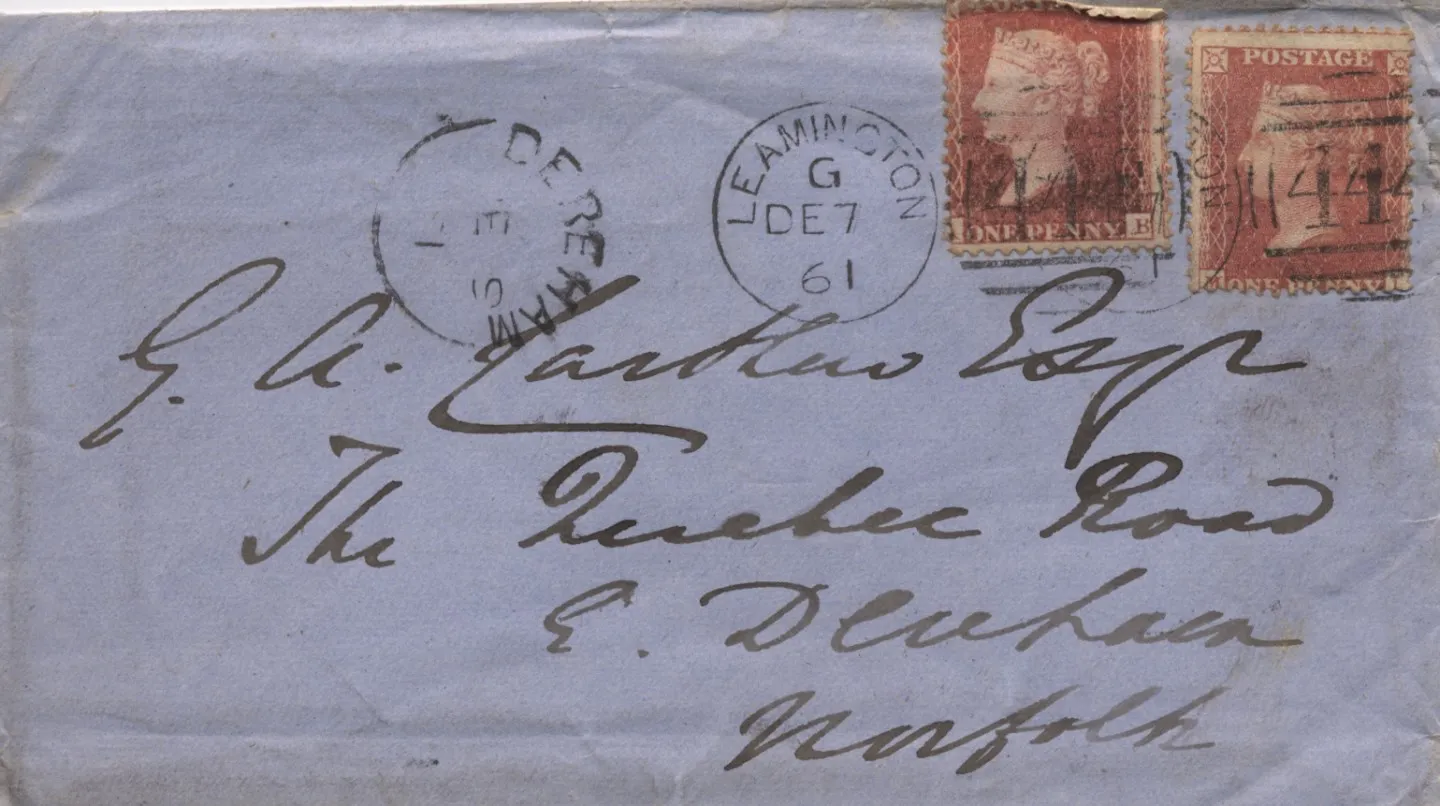 POSTAGE
DEREHAM
SE
LEAMINGTON
G
DE 7
61
ONE PENNY B
444
ONE PENNY
G. A. Carthew Esqr
The Quebec Road
E. Dereham
Norfolk